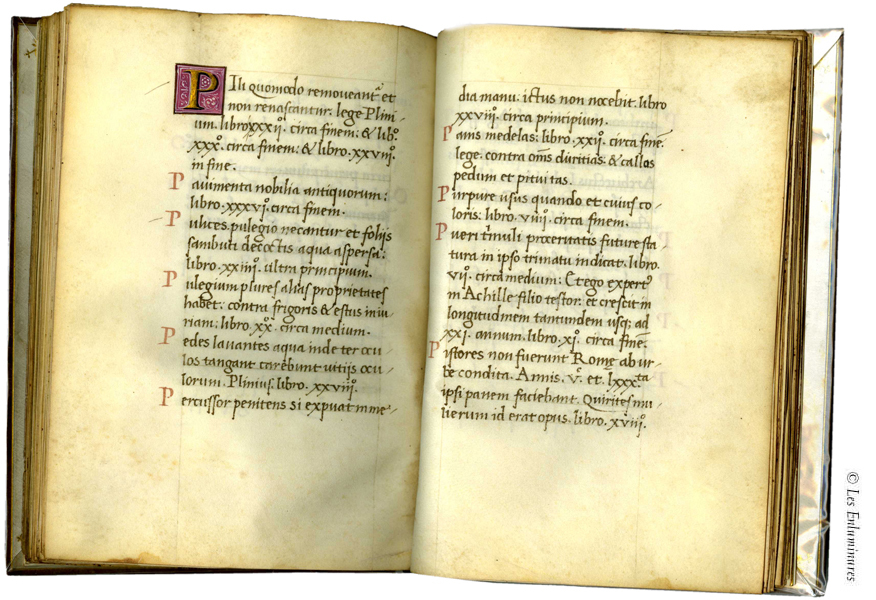 Pili quomodo remoueantʳ et
non renascantur. lege Plini-
um. libro xxxijº. circa finem: & libº
xxxº. circa finem: & libro. xxviijº.
in fine.
Pauimenta nobilia antiquorum:
libro. xxxvjº. circa finem.
Pulices pulegio necantur et foliis
sambuci decoctis aqua aspersa:
libro. xxiiijº. ultra principium.
Pulegium plures alias proprietates
habet: contra frigoris & estus iniu-
riam: libro. xxº. circa medium.
Pedes lauantes aqua inde ter ocu-
los tangant carebunt uitijs ocu-
lorum. Plinius. libro. xxviijº.
Percussor penitens si expuat in me-
dia manu: ictus non nocebit. libro
xxviijº. circa principium.
Panis medelas: libro. xxijº. circa finē.
lege. contra om̄s duritias. & callos
pedum et pituitas.
Purpure usus quando et cuius co-
loris: libro. viiijº. circa finem.
Pueri proceritatis future sta
tura in ipso trimatu indicat. libro.
vijº. circa medium: Et ego expert
in Achille filio testor. et crescit in
longitudinem tantundem usq; ad
xxj. annum. libro. xjº. circa finē.
Pistores non fuerunt Romę ab ur-
be condita. Annis. vᶜ. et. lxxxᵗᵃ
ipsi panem faciebant. Quirites mu-
lierum id erat opus. libro. xviijº.
© Les Enluminures